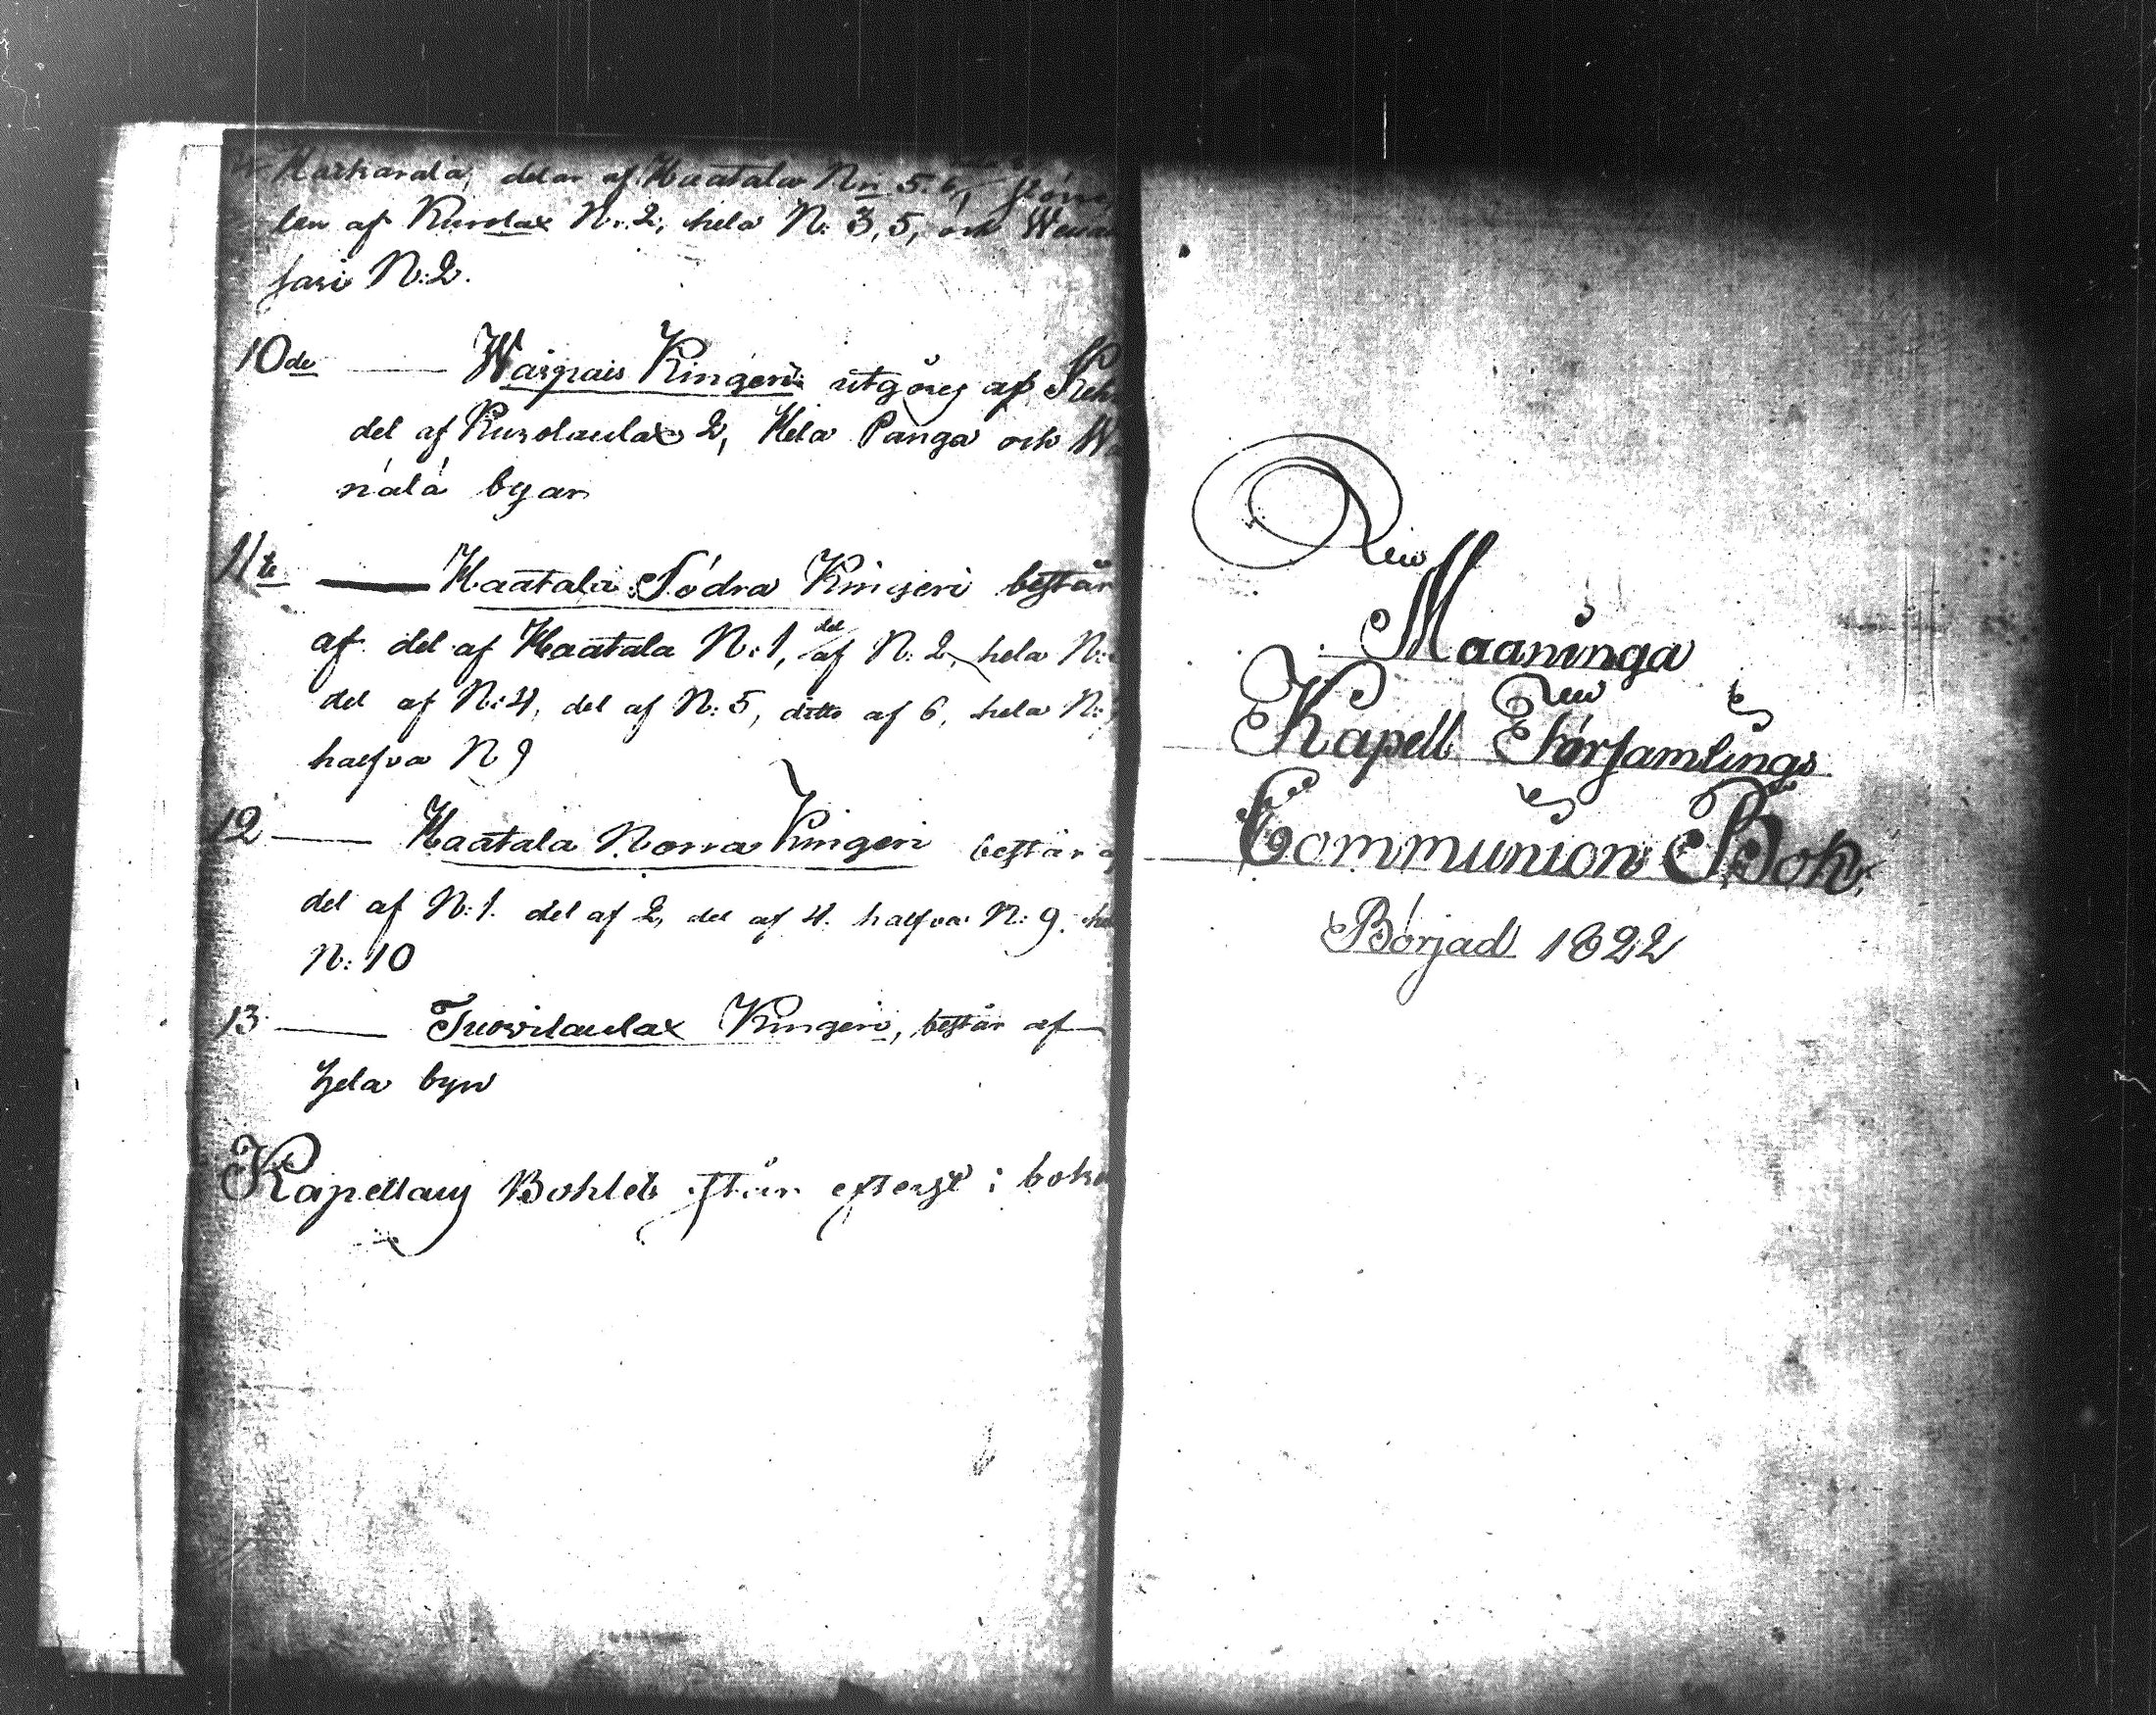 Harkarala, delar af Haatala N:ri 5. 6,
len af Kurolax N:2, hela N: 3, 5, och
sari N:2.
10de Waipais Kingeri utgöres af
del af Kurolaulax 2, Hela Panga och
nälä byar
11te Haatala Södra Kingeri består
af del af Haatala N:1, del af N:2, hela N:
del af N:4, del af N:5, ditto af 6, hela N:
halfva N 9
12 Haatala Norra Kingeri består
del af N:1. del af 2, del af 4. halfva N: 9.
N: 10
13 Tuovilaulax Kingeri, består af
hela byn
Kapellans Bohlet står efterst i
Maaninga
Kapell Församlings
Communion Bok,
Börjad 1822